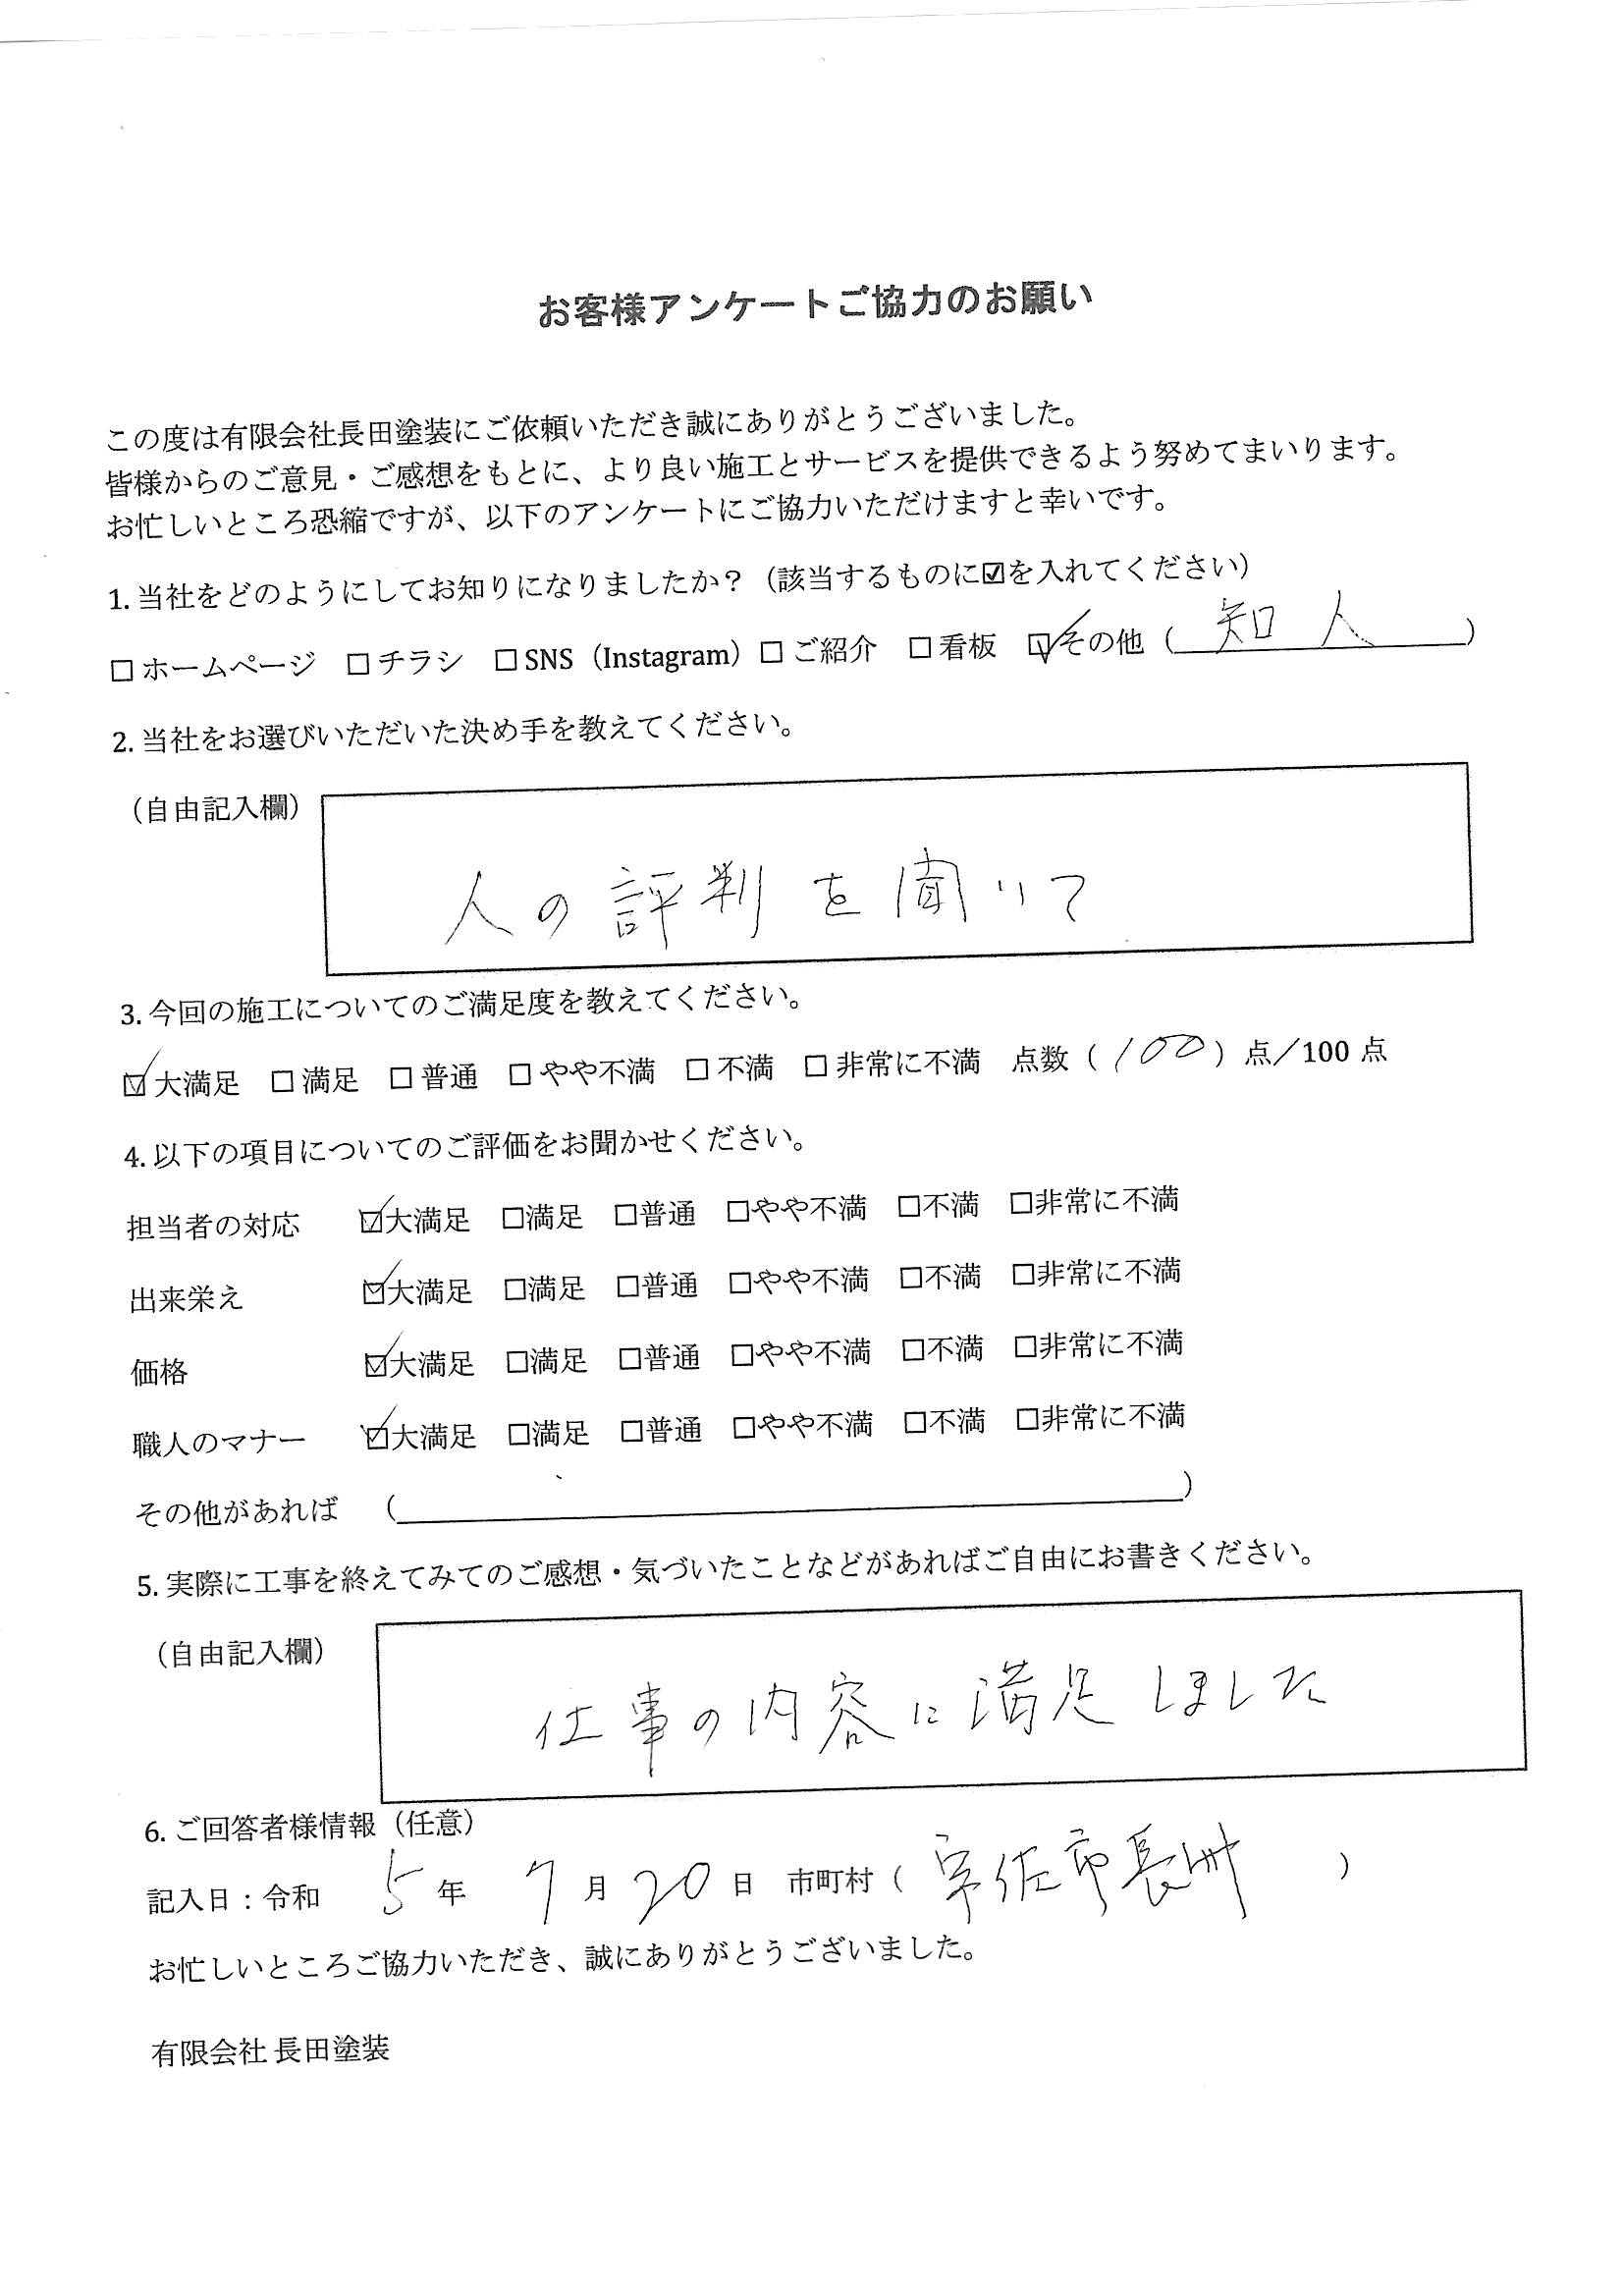 お客様アンケートご協力のお願い
この度は有限会社長田塗装にご依頼いただき誠にありがとうございました。
皆様からのご意見・ご感想をもとに、より良い施工とサービスを提供できるよう努めてまいります。
お忙しいところ恐縮ですが、以下のアンケートにご協力いただけますと幸いです。
1. 当社をどのようにしてお知りになりましたか？（該当するものに☑を入れてください）
☐ ホームページ ☐ チラシ ☐ SNS（Instagram）☐ ご紹介 ☐ 看板 ☑ その他（ 知人 ）
2. 当社をお選びいただいた決め手を教えてください。
（自由記入欄）
人の評判を聞いて
3. 今回の施工についてのご満足度を教えてください。
☑ 大満足 ☐ 満足 ☐ 普通 ☐ やや不満 ☐ 不満 ☐ 非常に不満 点数（ 100 ）点／100 点
4. 以下の項目についてのご評価をお聞かせください。
担当者の対応 ☑大満足 ☐満足 ☐普通 ☐やや不満 ☐不満 ☐非常に不満
出来栄え ☑大満足 ☐満足 ☐普通 ☐やや不満 ☐不満 ☐非常に不満
価格 ☑大満足 ☐満足 ☐普通 ☐やや不満 ☐不満 ☐非常に不満
職人のマナー ☑大満足 ☐満足 ☐普通 ☐やや不満 ☐不満 ☐非常に不満
その他があれば （ ）
5. 実際に工事を終えてみてのご感想・気づいたことなどがあればご自由にお書きください。
（自由記入欄）
仕事の内容に満足しました
6. ご回答者様情報（任意）
記入日：令和 5 年 7 月 20 日 市町村（ 宇佐市長洲 ）
お忙しいところご協力いただき、誠にありがとうございました。
有限会社 長田塗装